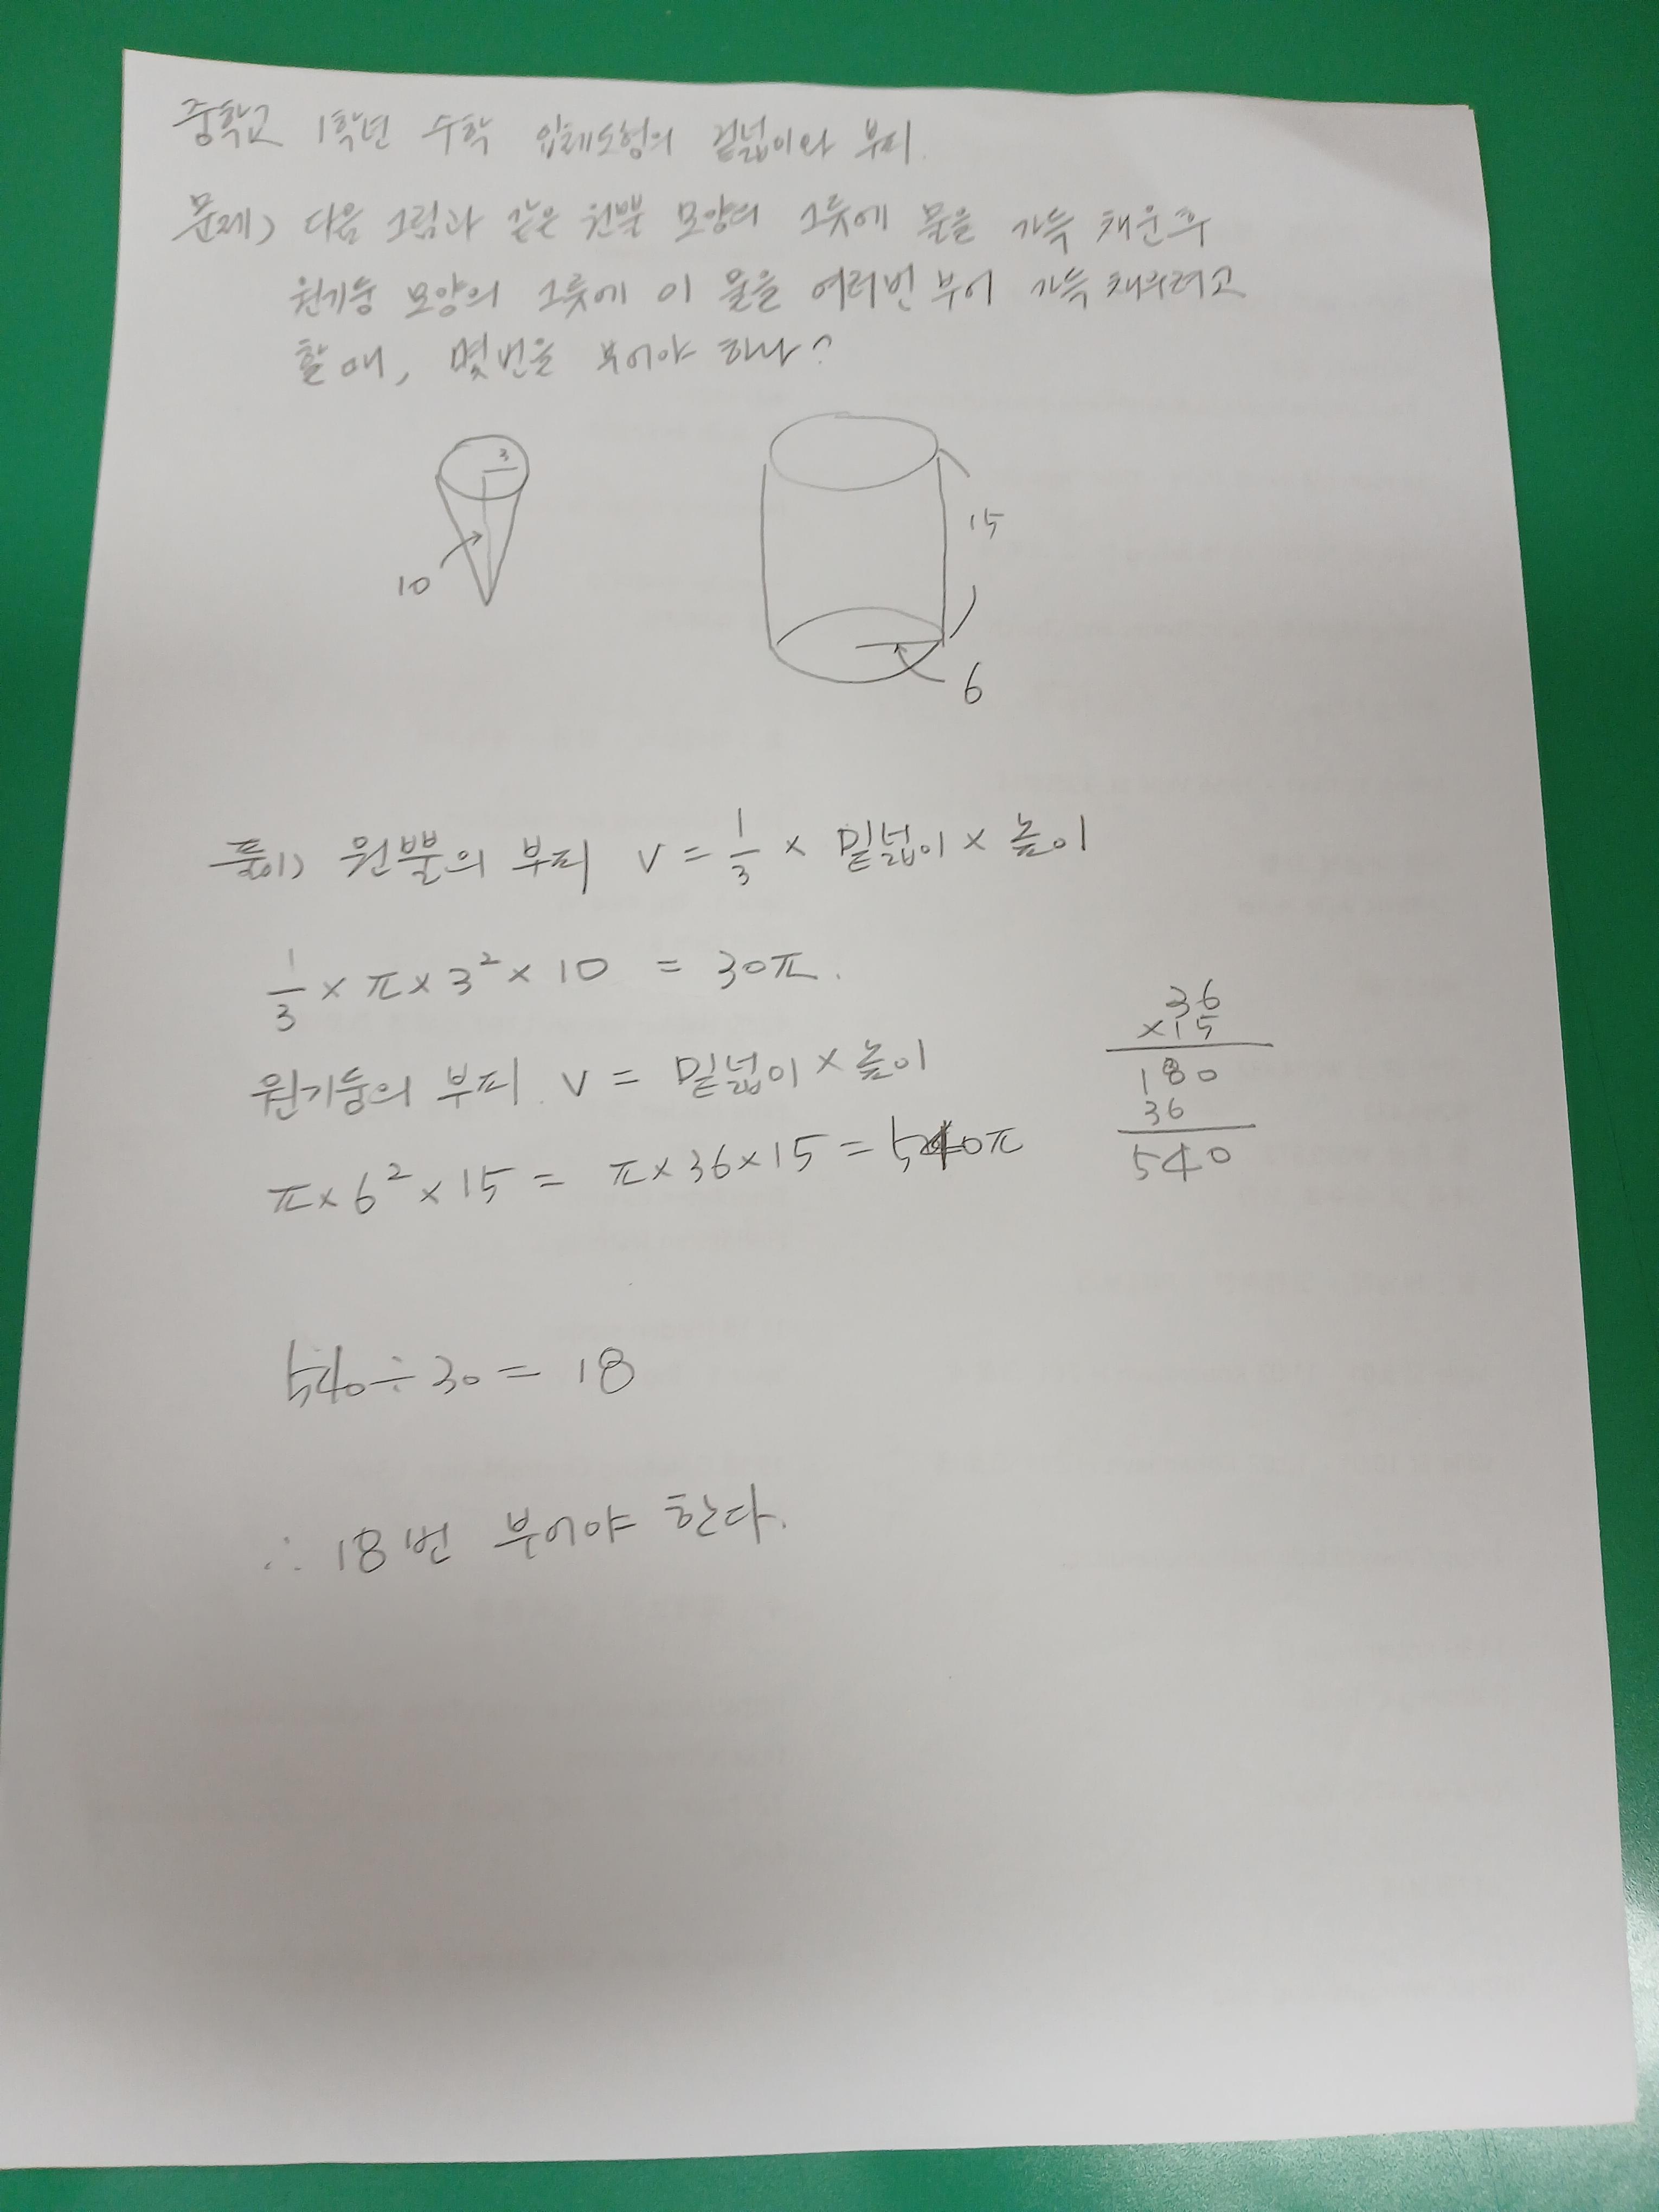 중학교 1학년 수학 입체도형의 겉넓이와 부피.
문제) 다음 그림과 같은 원뿔 모양의 그릇에 물을 가득 채운후
원기둥 모양의 그릇에 이 물을 여러번 부어 가득 채우려고
할 때, 몇번을 부어야 하나?
3
10
15
6
풀이) 원뿔의 부피 V = 1/3 × 밑넓이 × 높이
1/3 × π × 3² × 10 = 30π.
원기둥의 부피 V = 밑넓이 × 높이
π × 6² × 15 = π × 36 × 15 = 540π
36
×15
180
36
540
540 ÷ 30 = 18
∴ 18번 부어야 한다.